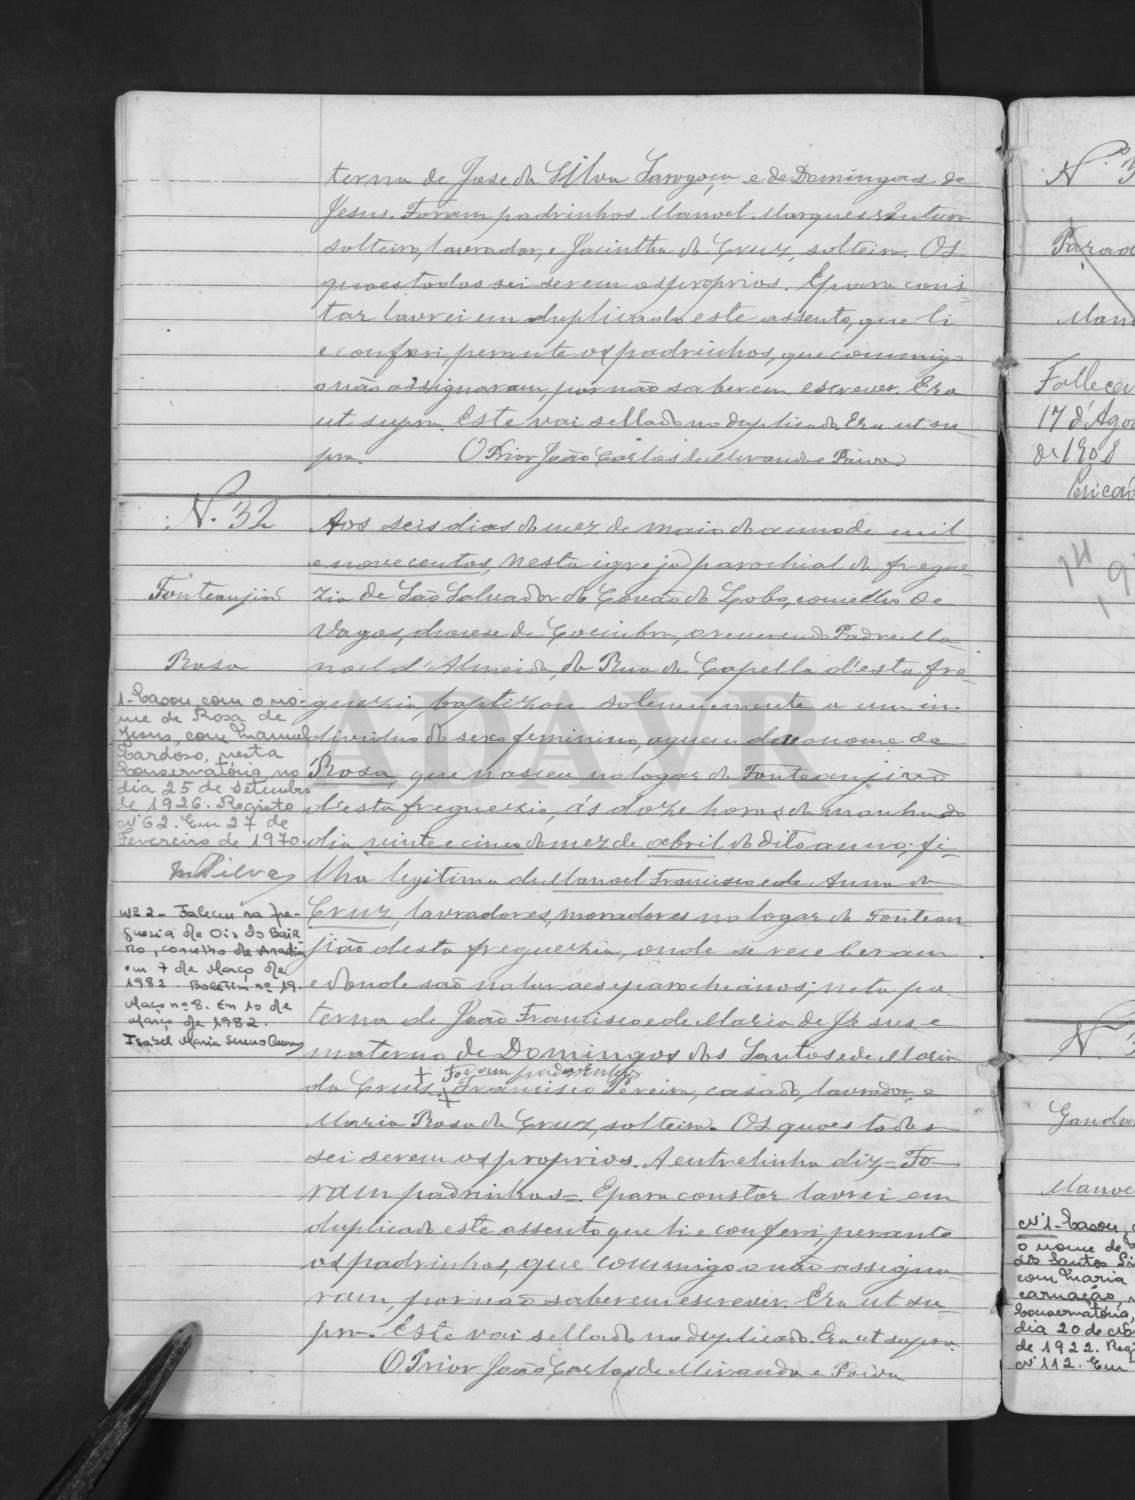 terna de José da Silva Sarogoça e de Domingas de
Jesus. Foram padrinhos Manoel Marques Ventura
solteiro, lavrador, e Jacintha da Cruz, solteira. Os
quaes todos sei serem os proprios. E para cons-
tar lavrei em duplicado este assento, que li
e conferi, perante os padrinhos, que commigo
o não assignaram, por não saberem escrever. Era
ut supra. Este vai sellado no duplicado. Era ut su-
pra. O Prior João Carlos de Miranda e Paiva
N. 32
Fonteanjião
Rosa
1-Casou, com o no-
me de Rosa de
Jesus, com Manuel
Cardoso, nesta
Conservatória, no
dia 25 de Setembro
de 1926. Registo
nº 62. Em 27 de
Fevereiro de 1970.
Nº 2 - Faleceu na fre-
guesia de Ois do Bair-
ro, concelho de Anadia
em 7 de Março de
1982. Boletim nº 19.
Maço nº 8. Em 10 de
Março de 1982.
Isabel Maria
Aos seis dias do mez de maio do anno de mil
e novecentos, nesta igreja parochial da fregue-
zia de São Salvador de Covão do Lobo, concelho de
Vagos, diocese de Coimbra, o reverendo Padre Ma-
noel d'Almeida, da Rua da Capella d'esta fre-
guezia, baptizou solemnemente a um in-
dividuo do sexo feminino, a quem deu o nome de
Rosa, que nasceu no logar de Fonteanjião
d'esta freguezia, ás doze horas da manha do
dia vinte e cinco do mez de abril do dito anno, fi-
lha legitima de Manoel Francisco e de Anna da
Cruz, lavradores, moradores no logar de Fontean-
jião desta freguezia, onde se receberam
e donde são naturaes e parochianos; neta pa-
terna de João Francisco e de Maria de Jesus e
materna de Domingos dos Santos e de Maria
+ Foram padrinhos
da Cruz. + Francisco Pereira, casado, lavrador, e
Maria Rosa da Cruz, solteira. Os quaes todos
sei serem os proprios. A entrelinha diz = Fo-
ram padrinhos =. E para constar lavrei em
duplicado este assento que li e conferi, perante
os padrinhos, que commigo o não assigna-
ram, por não saberem escrever. Era ut su-
pra. Este vai sellado no duplicado. Era ut supra.
O Prior João Carlos de Miranda e Paiva
ADAVR
N. 3
Fallecer
17 d'Ago
de 1908
N. 3
Manoe
Nº 1- Casou,
o nome de
dos Santos
com Maria
carnação,
Conservatória,
dia 20 de
de 1922. Reg
Nº 112. Em